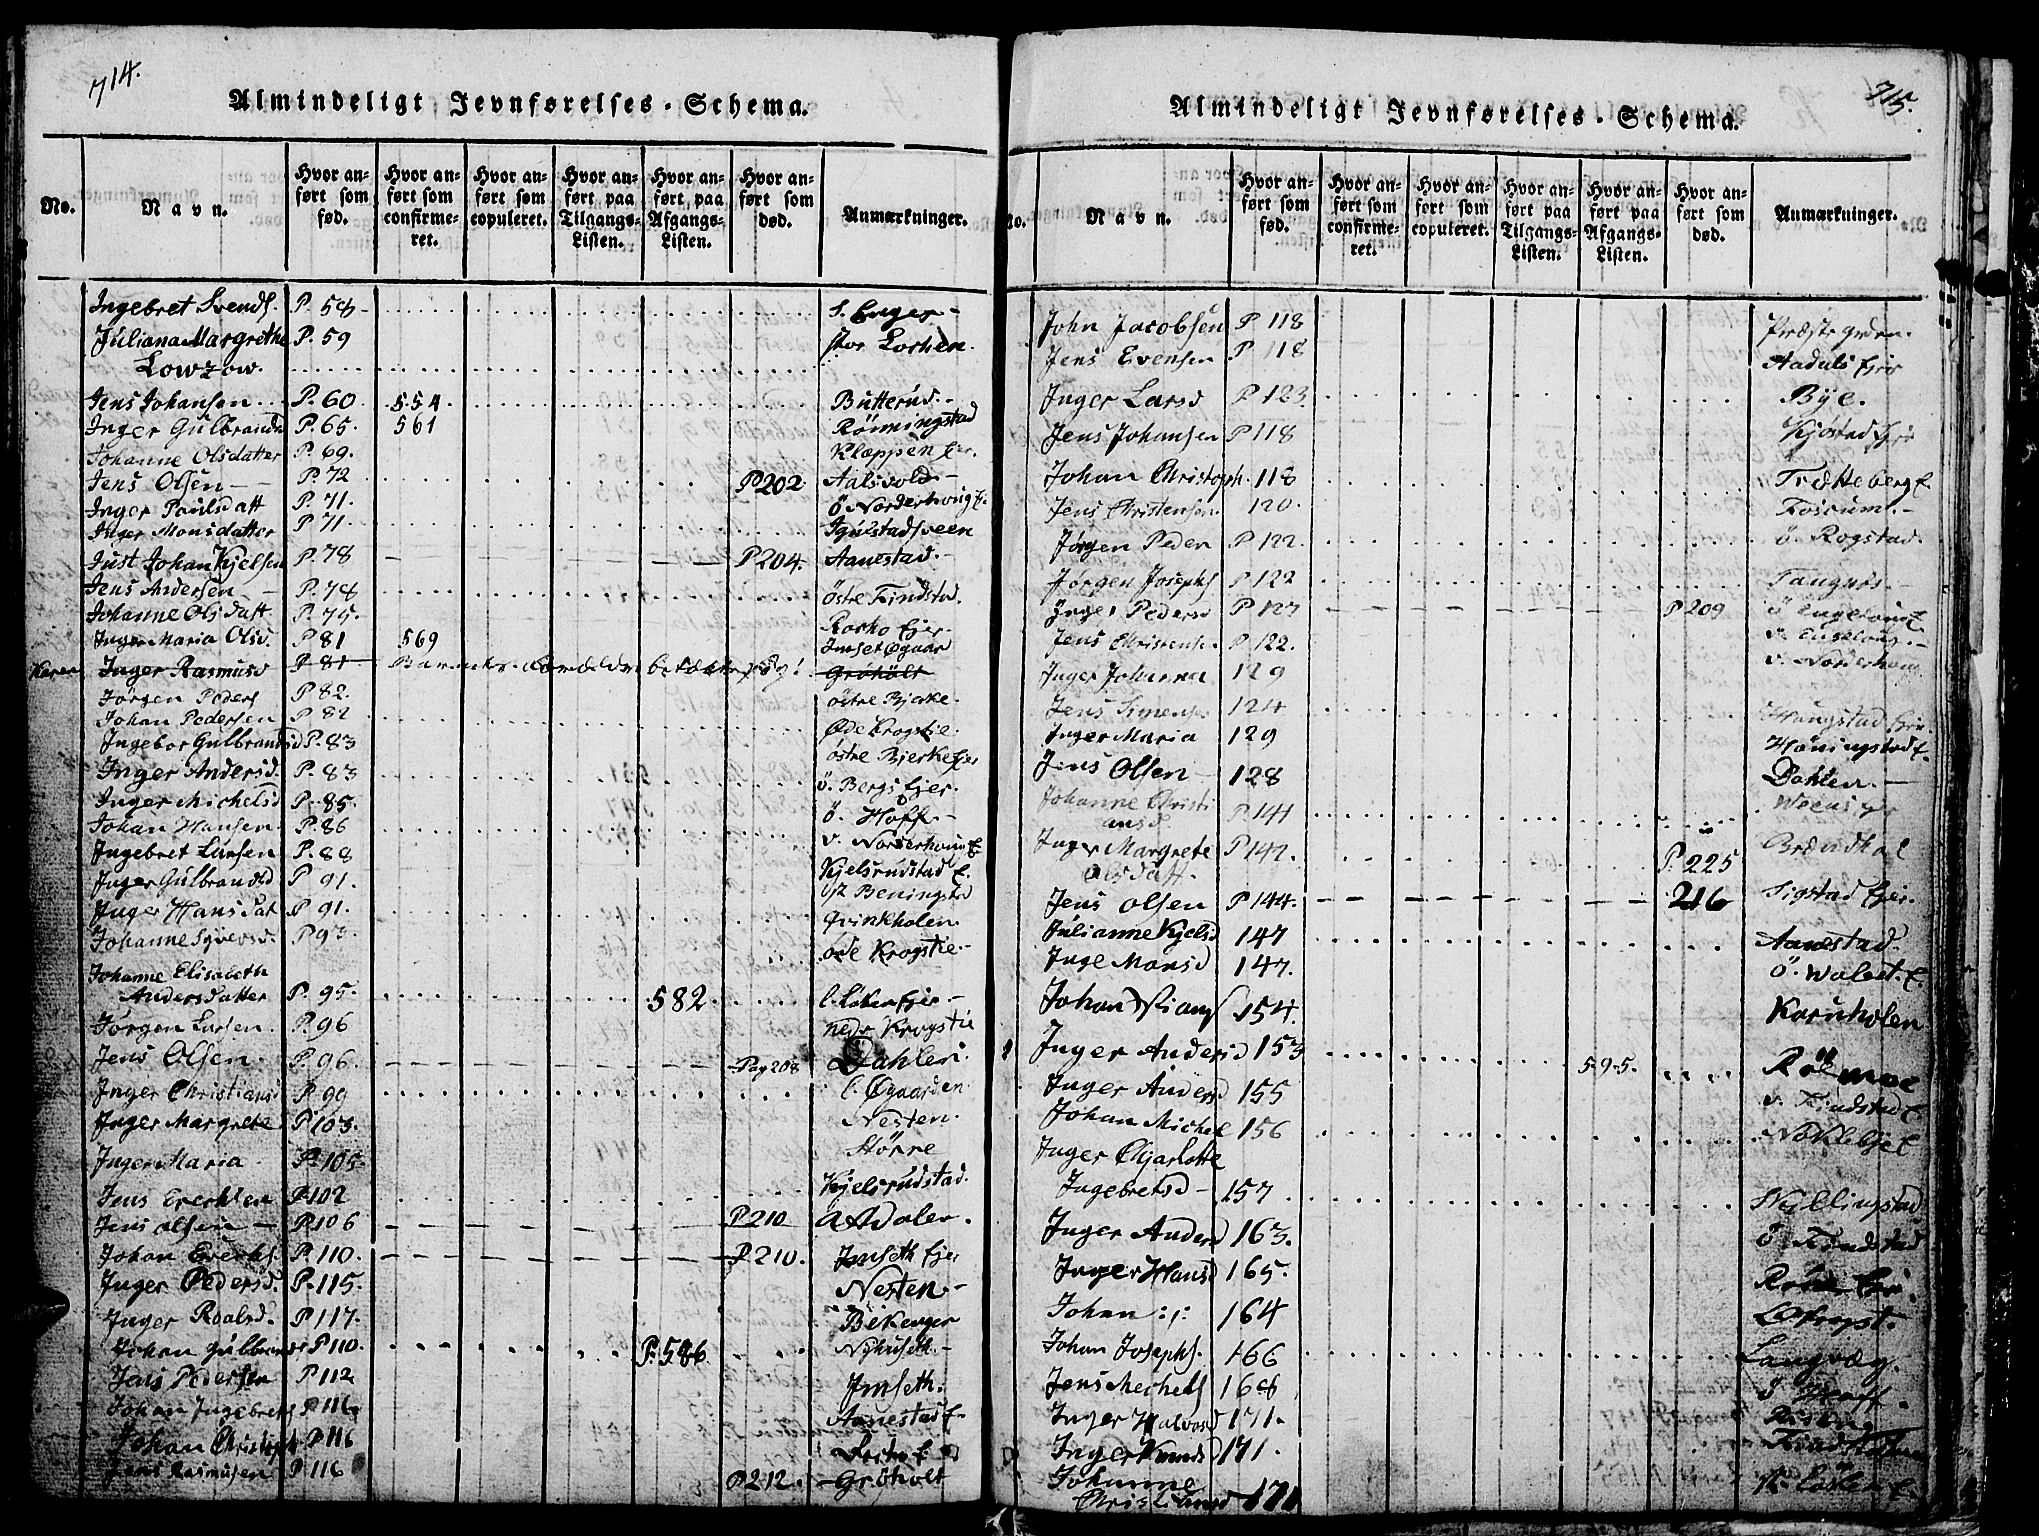 714.
Almindeligt Jevnførelses-Schema.
No. Navn. Hvor anført som fød. Hvor anført som confirmeret. Hvor anført som copuleret. Hvor anført paa Tilgangs-Listen. Hvor anført paa Afgangs-Listen. Hvor anført som død. Anmærkninger.
Ingebret Svends. P. 58 S. Enger
Juliana Margrethe P. 59 stor Lochen.
Lowzow.
Jens Johansen P. 60 554 Butterud.
Inger Gulbrandsd P. 65. 561 Rönningstad
Johanne Olsdatter P. 69. Klæppen Eie.
Jens Olsen P. 72 P 202 Aalsvold
Inger Paulsdatt P. 71. ö Norderhoug E.
Inger Monsdatter P 71. Igulstadsveen
Just Johan Kjelsen P. 78 P 204. Aanestad.
Jens Andersen P. 78 östre Findstad.
Johanne Olsdatt P. 75. Rosko Ejer.
Inger Maria Olsd. P 81 569 Imset Øgaard
Karen Inger Rasmusd P 81 Gröholt
Jörgen Peders P 82. östre Bjerke.
Johan Pedersen P 82 Øde Krogstie.
Ingebor Gulbrandsd P. 83 östre Bjerke Ejer
Inger Andersd. P. 83 ö. Bergs Ejer.
Inger Michelsd P. 85. ö. Hoff
Johan Hansen. P. 86 v. Norderhoug E.
Ingebret Larsen P. 88 Kjelsrudstad E.
Inger Gulbrandsd P 91. Beningstad
Inger Hansdat P 91. Qvinkholen
Johanne Syversd. P 93. öde Krogstie
Johanne Elisabeth
Andersdatter P. 95. 582 l. Löken Ejer
Jörgen Larsen. P. 96 nedr Krogstie
Jens Olsen. P. 96 Pag 208 Dahlen
Inger Christiansd P 99 l. Øgaarden
Inger Margrete P 103. Nesten.
Inger Maria P 105 Hörre
Jens Erechsen P 102 Kjelsrudstad.
Jens Olsen P 106 P 210 Atdalen.
Johan Erechs. P. 110. P 210. Imseth Ejer
Inger Pedersd. P. 115. Nesten
Inger Roalsd. P 117. Bekenger
Johan Gulbrands P 110. P. 586 Nyhuseth
Jens Pedersen P 112 Imseth.
Johan Ingebrets P 116. Aanestad E.
Johan Christoph P 116
Jens Rasmusen P 116 P 212. Gröholt
715.
Almindeligt Jevnførelses-Schema.
No. Navn. Hvor anført som fød. Hvor anført som confirmeret. Hvor anført som copuleret. Hvor anført paa Tilgangs-Listen. Hvor anført paa Afgangs-Listen. Hvor anført som død. Anmærkninger.
John Jacobsen P 118 Præstegrden.
Jens Evensen P 118 Aaduls Ejer
Inger Larsd P 123. Bye.
Jens Johansen P 118 Kjostad Ejer
Johan Christoph. 118 Trætteberg E.
Jens Christensen 120. Fossum.
Jörgen Peder P 122. ö. Rogstad.
Jörgen Josephs P 122 Tangnes
Inger Pedersd P 127 P 209
Jens Christense P 122.
Inger Johanna 129 v. Norderhoug
Jens Simens 124 Haugstad Ejer.
Inger Maria 129 Höningstad E.
Jens Olsen 128 Dahlen.
Johanne Christi
ansd. P. 141
Inger Margrete P 142. P. 225
Olsdatt.
Jens Olsen P 144. 216 Sigstad Ejer.
Julianne Kjelsd 147 Aanestad.
Inge Monsd 147. ö. Walset. E.
Johan 154. Kornholen
Inger Andersd 153 595. Rölmoe
Inger Andersd 155 v. Findstad E
Johan Michel 156 Nöklebye E
Inger Charlotte
Ingebretsd 157 Nyllingstad
Inger Andersd 163. ö. Findstad
Inger Hansd 165.
Johan :/: 164
Johan Josephs. 166 Langvæg.
Jens Mechels 168 ö Hoff.
Inger Halvorsd 171.
Inger Knudsd 171
Johanne
Christiansd 171